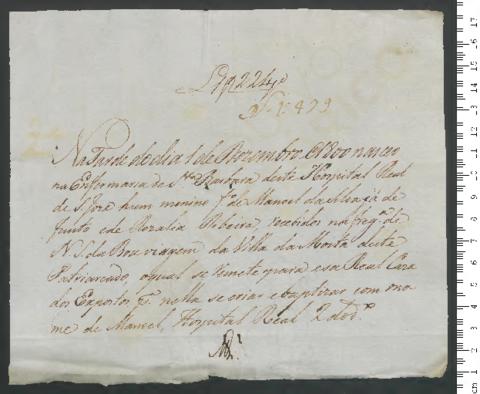 Nº 1499
Na Tarde do dia 1 de Dezembro de 1800 nasceo
na Enfermaria de Sta Barbara deste Hospital Real
de S. José hum menino fº de Manoel da
e de Rozalia Ribeira, recebidos na freg.ª de
N. S. da Boa viagem da Villa da Moita deste
Patriarcado, o qual se remete para essa Real Caza
dos Expostos pª nella se criar e baptizar com o no
me de Manoel, Hospital Real 2 do dº